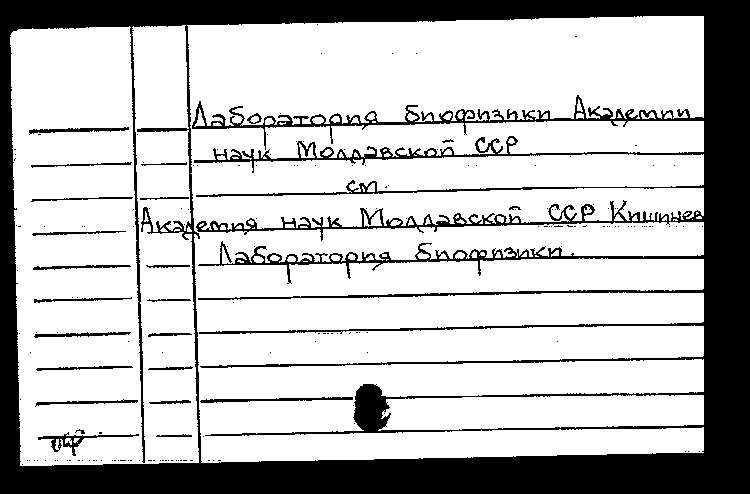 Лаборатория биофизики Академии
наук Молдавской ССР
см.
Академия наук Молдавской ССР Кишинев
Лаборатория биофизики.